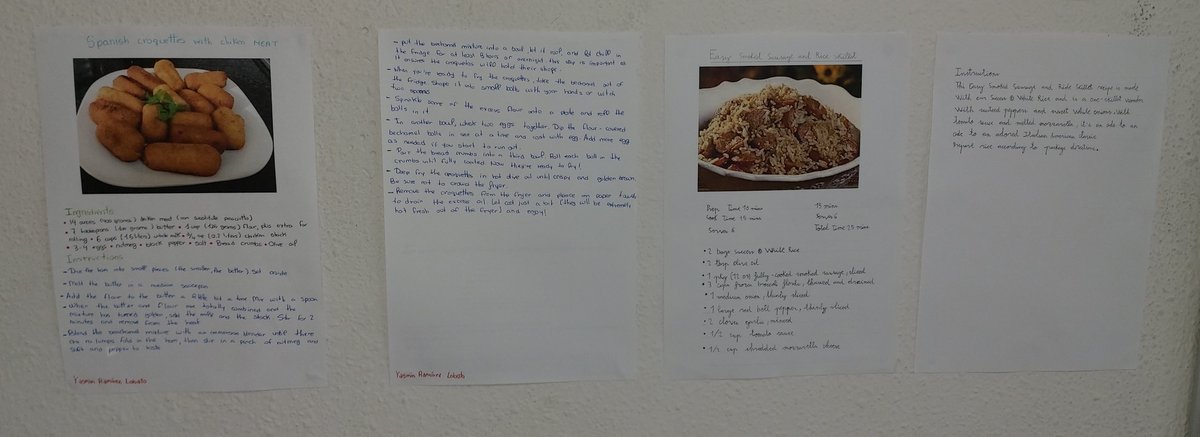 Spanish croquettes with chiken MEAT
Ingredients
• 14 ounces (400 grams) chiken meat (can substitute prosciutto)
• 7 tablespoons (100 grams) butter • 1 cup (120 grams) flour, plus extra for
rolling • 6 cups (1.5 liters) whole milk • 3/4 cup (0.2 liters) chicken stock
• 3-4 eggs • nutmeg • black pepper • salt • Bread crumbs • Olive oil
Instructions
- Dice the ham into small pieces (the smaller, the better). Set aside
- Melt the butter in a medium saucepan
- Add the flour to the butter a little bit a time Mix with a spoon
- When the butter and flour are totally combined and the
mixture has turned golden, add the milk and the stock. Stir for 2
minutes and remove from the heat
- Blend the bechamel mixture with an immersion blender until there
are no lumps left in the ham, then stir in a pinch of nutmeg and
salt and pepper to taste
Yasmin Ramírez Lobato
- put the bechamel mixture into a bowl let it cool, and let chill in
the fridge for at least 8 hours or overnight this step is important as
it ensures the croquettes will hold their shape.
- When you're ready to fry the croquettes, take the bechamel out of
the fridge shape it into small balls with your hands or with
two spoons
- Sprinkle some of the excess flour onto a plate and roll the
balls in it
- In another bowl, whisk two eggs together. Dip the flour-covered
bechamel balls in one at a time and coat with egg. Add more egg
as needed if you start to run out.
- Pour the bread crumbs into a third bowl. Roll each ball in the
crumbs until fully coated Now they're ready to fry!
- Deep fry the croquettes in hot olive oil until crispy and golden brown.
Be sure not to crowd the fryer.
- Remove the croquettes from the fryer and place on paper towels
to drain the excess oil Let cool just a bit (they will be extremely
hot fresh out of the fryer) and enjoy!
Yasmin Ramírez Lobato
Easy Smoked Sausage and Rice Skillet
Prep Time 10 mins 15 mins
Cook Time 15 mins Serves 6
Serves 6 Total Time 25 mins
• 2 bags success ® White Rice
• 2 tbsp olive oil
• 1 pkg (12 oz) fully-cooked smoked sausage, sliced
• 3 cups frozen broccoli florets, thawed and drained
• 1 medium onion, thinly sliced
• 1 large red bell pepper, thinly sliced
• 2 cloves garlic, minced
• 1/2 cup tomato sauce
• 1/4 cup shredded mozzarella cheese
Instructions
This Easy Smoked Sausage and Ride Skillet recipe is made
With our Success ® White Rice and is a one-skillet wonder
With sautéed peppers and sweet white onions. With
tomato sauce and melted mozzarella, it's an ode to an
ode to an adored Italian American classic
Prepare rice according to package directions.